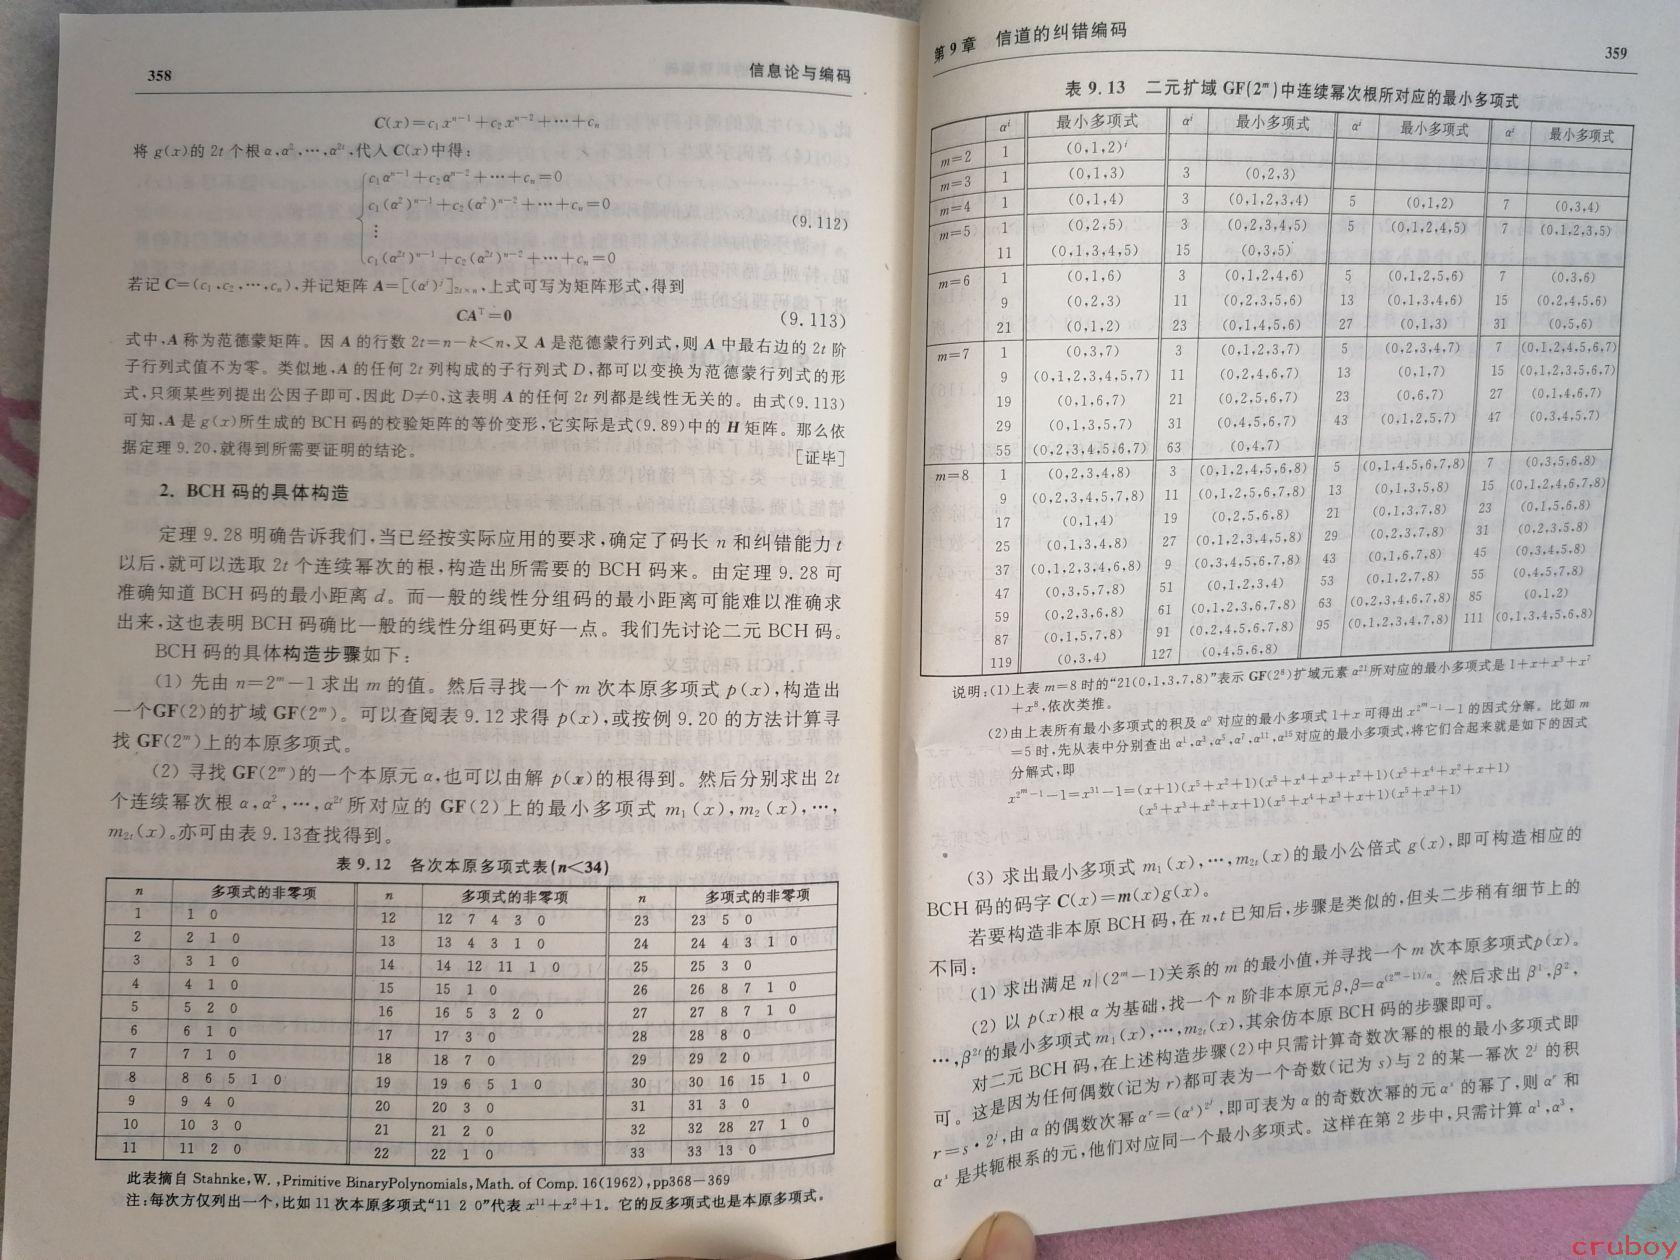 358
信息论与编码
C(x)=c₁xⁿ⁻¹+c₂xⁿ⁻²+⋯+cₙ
将 g(x)的 2t 个根α,α²,⋯,α²ᵗ,代人 C(x)中得:
c₁αⁿ⁻¹+c₂αⁿ⁻²+⋯+cₙ=0
c₁(α²)ⁿ⁻¹+c₂(α²)ⁿ⁻²+⋯+cₙ=0
⋮
(9.112)
c₁(α²ᵗ)ⁿ⁻¹+c₂(α²ᵗ)ⁿ⁻²+⋯+cₙ=0
若记 C=(c₁,c₂,⋯,cₙ),并记矩阵 A=[(αⁱ)ʲ]₂ₜ×ₙ,上式可写为矩阵形式,得到
CAᵀ=0 (9.113)
式中,A 称为范德蒙矩阵。因 A 的行数 2t=n-k<n,又 A 是范德蒙行列式,则 A 中最右边的 2t 阶
子行列式值不为零。类似地,A 的任何 2t 列构成的子行列式 D,都可以变换为范德蒙行列式的形
式,只须某些列提出公因子即可,因此 D≠0,这表明 A 的任何 2t 列都是线性无关的。由式(9.113)
可知,A 是 g(x)所生成的 BCH 码的校验矩阵的等价变形,它实际是式(9.89)中的 H 矩阵。那么依
据定理 9.20,就得到所需要证明的结论。 [证毕]
2. BCH 码的具体构造
定理 9.28 明确告诉我们,当已经按实际应用的要求,确定了码长 n 和纠错能力 t
以后,就可以选取 2t 个连续幂次的根,构造出所需要的 BCH 码来。由定理 9.28 可
准确知道 BCH 码的最小距离 d。而一般的线性分组码的最小距离可能难以准确求
出来,这也表明 BCH 码确比一般的线性分组码更好一点。我们先讨论二元 BCH 码。
BCH 码的具体构造步骤如下:
(1) 先由 n=2ᵐ-1 求出 m 的值。然后寻找一个 m 次本原多项式 p(x),构造出
一个GF(2)的扩域 GF(2ᵐ)。可以查阅表 9.12 求得 p(x),或按例 9.20 的方法计算寻
找 GF(2ᵐ)上的本原多项式。
(2) 寻找 GF(2ᵐ)的一个本原元 α,也可以由解 p(x)的根得到。然后分别求出 2t
个连续幂次根 α,α²,⋯,α²ᵗ 所对应的 GF(2)上的最小多项式 m₁(x),m₂(x),⋯,
m₂ₜ(x)。亦可由表 9.13查找得到。
表 9.12 各次本原多项式表(n<34)
n 多项式的非零项 n 多项式的非零项 n 多项式的非零项
1 1 0 12 12 7 4 3 0 23 23 5 0
2 2 1 0 13 13 4 3 1 0 24 24 4 3 1 0
3 3 1 0 14 14 12 11 1 0 25 25 3 0
4 4 1 0 15 15 1 0 26 26 8 7 1 0
5 5 2 0 16 16 5 3 2 0 27 27 8 7 1 0
6 6 1 0 17 17 3 0 28 28 8 0
7 7 1 0 18 18 7 0 29 29 2 0
8 8 6 5 1 0 19 19 6 5 1 0 30 30 16 15 1 0
9 9 4 0 20 20 3 0 31 31 3 0
10 10 3 0 21 21 2 0 32 32 28 27 1 0
11 11 2 0 22 22 1 0 33 33 13 0
此表摘自 Stahnke,W. ,Primitive BinaryPolynomials,Math. of Comp. 16(1962),pp368—369
注:每次方仅列出一个,比如 11 次本原多项式“11 2 0”代表 x¹¹+x²+1。它的反多项式也是本原多项式。
第 9 章 信道的纠错编码
359
表 9.13 二元扩域 GF(2ᵐ)中连续幂次根所对应的最小多项式
αⁱ 最小多项式 αⁱ 最小多项式 αⁱ 最小多项式 αⁱ 最小多项式
m=2 1 (0,1,2)ⁱ
m=3 1 (0,1,3) 3 (0,2,3)
m=4 1 (0,1,4) 3 (0,1,2,3,4) 5 (0,1,2) 7 (0,3,4)
m=5 1 (0,2,5) 3 (0,2,3,4,5) 5 (0,1,2,4,5) 7 (0,1,2,3,5)
11 (0,1,3,4,5) 15 (0,3,5)
m=6 1 (0,1,6) 3 (0,1,2,4,6) 5 (0,1,2,5,6) 7 (0,3,6)
9 (0,2,3) 11 (0,2,3,5,6) 13 (0,1,3,4,6) 15 (0,2,4,5,6)
21 (0,1,2) 23 (0,1,4,5,6) 27 (0,1,3) 31 (0,5,6)
m=7 1 (0,3,7) 3 (0,1,2,3,7) 5 (0,2,3,4,7) 7 (0,1,2,4,5,6,7)
9 (0,1,2,3,4,5,7) 11 (0,2,4,6,7) 13 (0,1,7) 15 (0,1,2,3,5,6,7)
19 (0,1,6,7) 21 (0,2,5,6,7) 23 (0,6,7) 27 (0,1,4,6,7)
29 (0,1,3,5,7) 31 (0,4,5,6,7) 43 (0,1,2,5,7) 47 (0,3,4,5,7)
55 (0,2,3,4,5,6,7) 63 (0,4,7)
m=8 1 (0,2,3,4,8) 3 (0,1,2,4,5,6,8) 5 (0,1,4,5,6,7,8) 7 (0,3,5,6,8)
9 (0,2,3,4,5,7,8) 11 (0,1,2,5,6,7,8) 13 (0,1,3,5,8) 15 (0,1,2,4,6,7,8)
17 (0,1,4) 19 (0,2,5,6,8) 21 (0,1,3,7,8) 23 (0,1,5,6,8)
25 (0,1,3,4,8) 27 (0,1,2,3,4,5,8) 29 (0,2,3,7,8) 31 (0,2,3,5,8)
37 (0,1,2,3,4,6,8) 9 (0,3,4,5,6,7,8) 43 (0,1,6,7,8) 45 (0,3,4,5,8)
47 (0,3,5,7,8) 51 (0,1,2,3,4) 53 (0,1,2,7,8) 55 (0,4,5,7,8)
59 (0,2,3,6,8) 61 (0,1,2,3,6,7,8) 63 (0,2,3,4,6,7,8) 85 (0,1,2)
87 (0,1,5,7,8) 91 (0,2,4,5,6,7,8) 95 (0,1,2,3,4,7,8) 111 (0,1,3,4,5,6,8)
119 (0,3,4) 127 (0,4,5,6,8)
说明:(1)上表 m=8 时的“21(0,1,3,7,8)”表示 GF(2⁸)扩域元素 α²¹所对应的最小多项式是 1+x+x³+x⁷
+x⁸,依次类推。
(2)由上表所有最小多项式的积及 α⁰ 对应的最小多项式 1+x 可得出 x^(2ᵐ-1)-1 的因式分解。比如 m
=5 时,先从表中分别查出 α¹,α³,α⁵,α⁷,α¹¹,α¹⁵对应的最小多项式,将它们合起来就是如下的因式
分解式,即
x^(2ᵐ-1)-1=x³¹-1=(x+1)(x⁵+x²+1)(x⁵+x⁴+x³+x²+1)(x⁵+x⁴+x²+x+1)
(x⁵+x³+x²+x+1)(x⁵+x⁴+x³+x+1)(x⁵+x³+1)
(3) 求出最小多项式 m₁(x),⋯,m₂ₜ(x)的最小公倍式 g(x),即可构造相应的
BCH 码的码字 C(x)=m(x)g(x)。
若要构造非本原 BCH 码,在 n,t 已知后,步骤是类似的,但头二步稍有细节上的
不同:
(1) 求出满足 n|(2ᵐ-1)关系的 m 的最小值,并寻找一个 m 次本原多项式p(x)。
(2) 以 p(x)根 α 为基础,找一个 n 阶非本原元β,β=α^((2ᵐ-1)/n)。然后求出 β¹,β²,
⋯,β²ᵗ的最小多项式 m₁(x),⋯,m₂ₜ(x),其余仿本原 BCH 码的步骤即可。
对二元 BCH 码,在上述构造步骤(2)中只需计算奇数次幂的根的最小多项式即
可。这是因为任何偶数(记为 r)都可表为一个奇数(记为 s)与 2 的某一幂次 2ʲ 的积
r=s·2ʲ,由 α 的偶数次幂 αʳ=(αˢ)^(2ʲ),即可表为 α 的奇数次幂的元 αˢ 的幂了,则 αʳ 和
αˢ 是共轭根系的元,他们对应同一个最小多项式。这样在第 2 步中,只需计算 α¹,α³,
cruboy